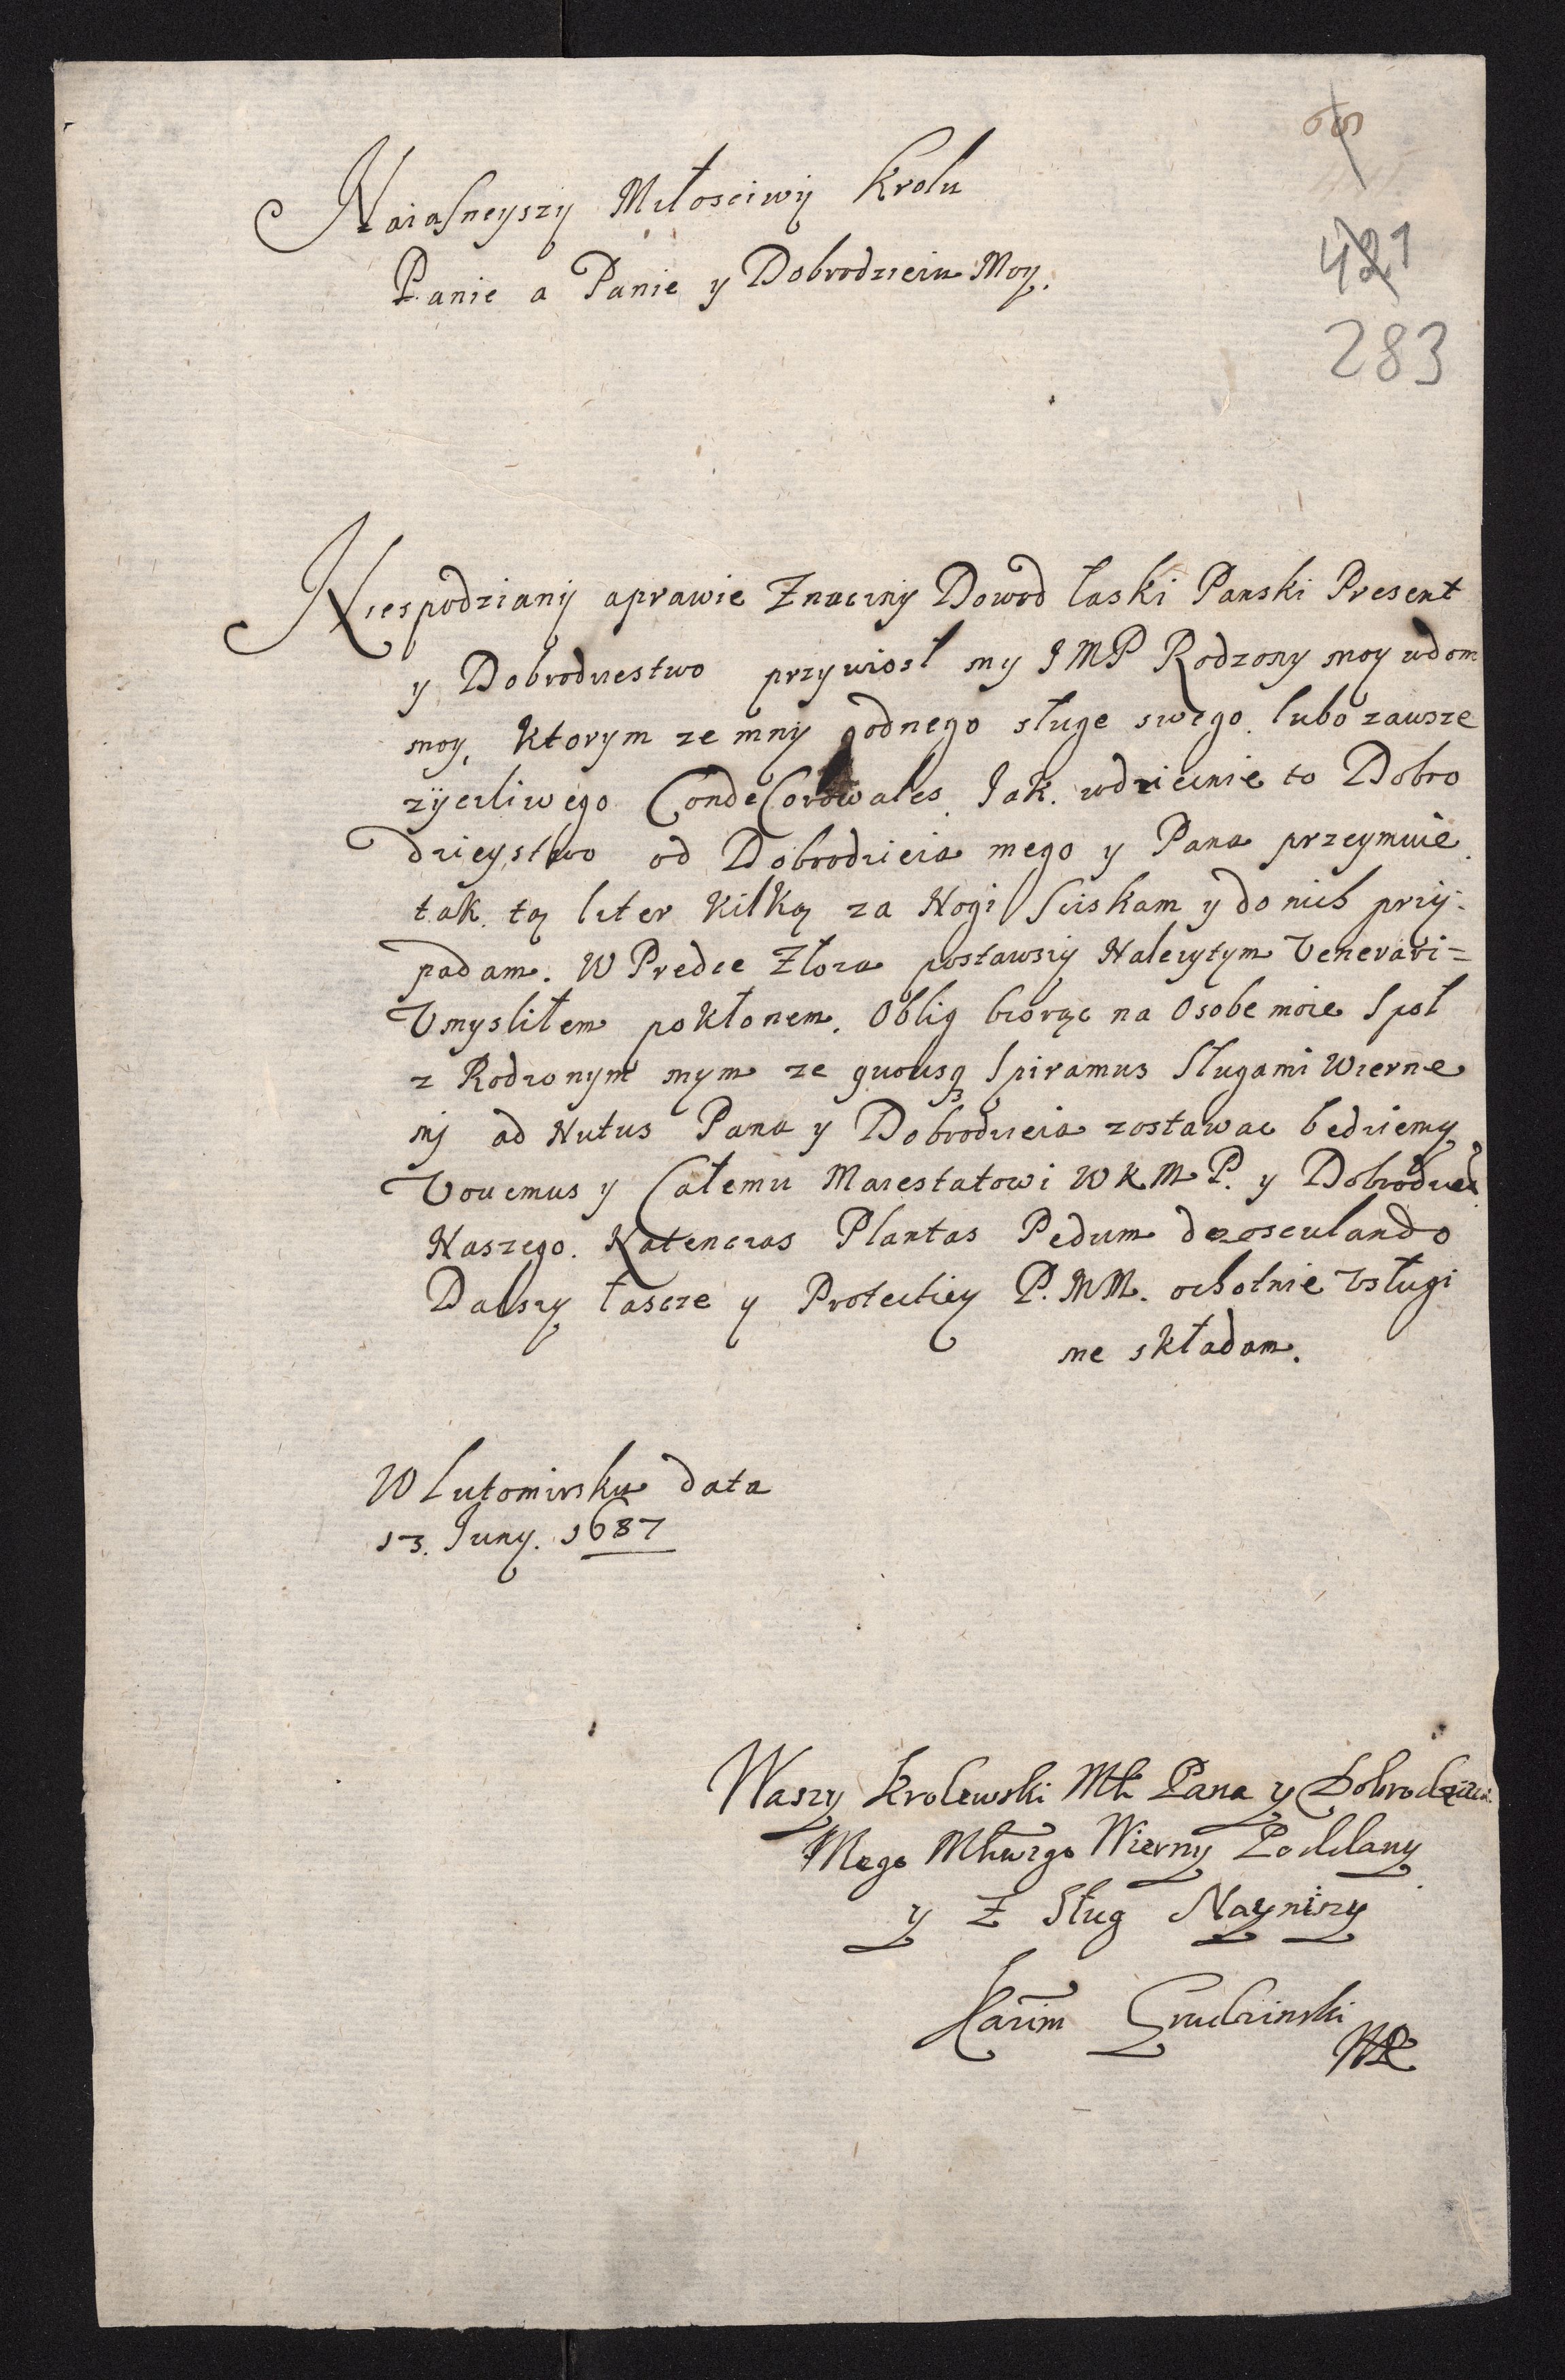 65
421
283
Naiasneyszy Miłosciwy Krolu
Panie a Panie y Dobrodzieiu Moy.
Niespodziany aprawie Znaczny Dowod łaski Panski Present
y Dobrodziestwo przywiosł my JMP Rodzony moy wdom
moy, ktorym ze mny godnego sługe swego. lubo zawsze
zÿczliwego CondeCorowałes. Jak. wdziecznie to Dobro
dzieystwo od Dobrodzieia mego y Pana przeymuie.
tak. tą liter kilką za Nogi Sciskam y do nich przÿ-
padam. W Predce Złoza postawszy Nalezytym Venerari=
Vmysliłem pokłonem. Oblig biorąc na Osobe moie Społ
z Rodzonym mym ze quousq3 Spiramus Sługami Wierne
mj ad Nutus Pana y Dobrodzieia zostawac bedziemy
Vouemus y Całemu Maiestatowi W K M P. y Dobrodzieia
Naszego. Natenczas Plantas Pedum deosculando
Dalszy łascze y Protectiey P. MM. ochotnie Vsługi
me składam.
W Lutomirsku data
13. Juny. 1687
Waszy Krolewski Mti Pana y Dobrodzieia
Mego Mtiwego Wierny Poddany
y Z Sług Naynizszy
Kazim Grudzinski
MP